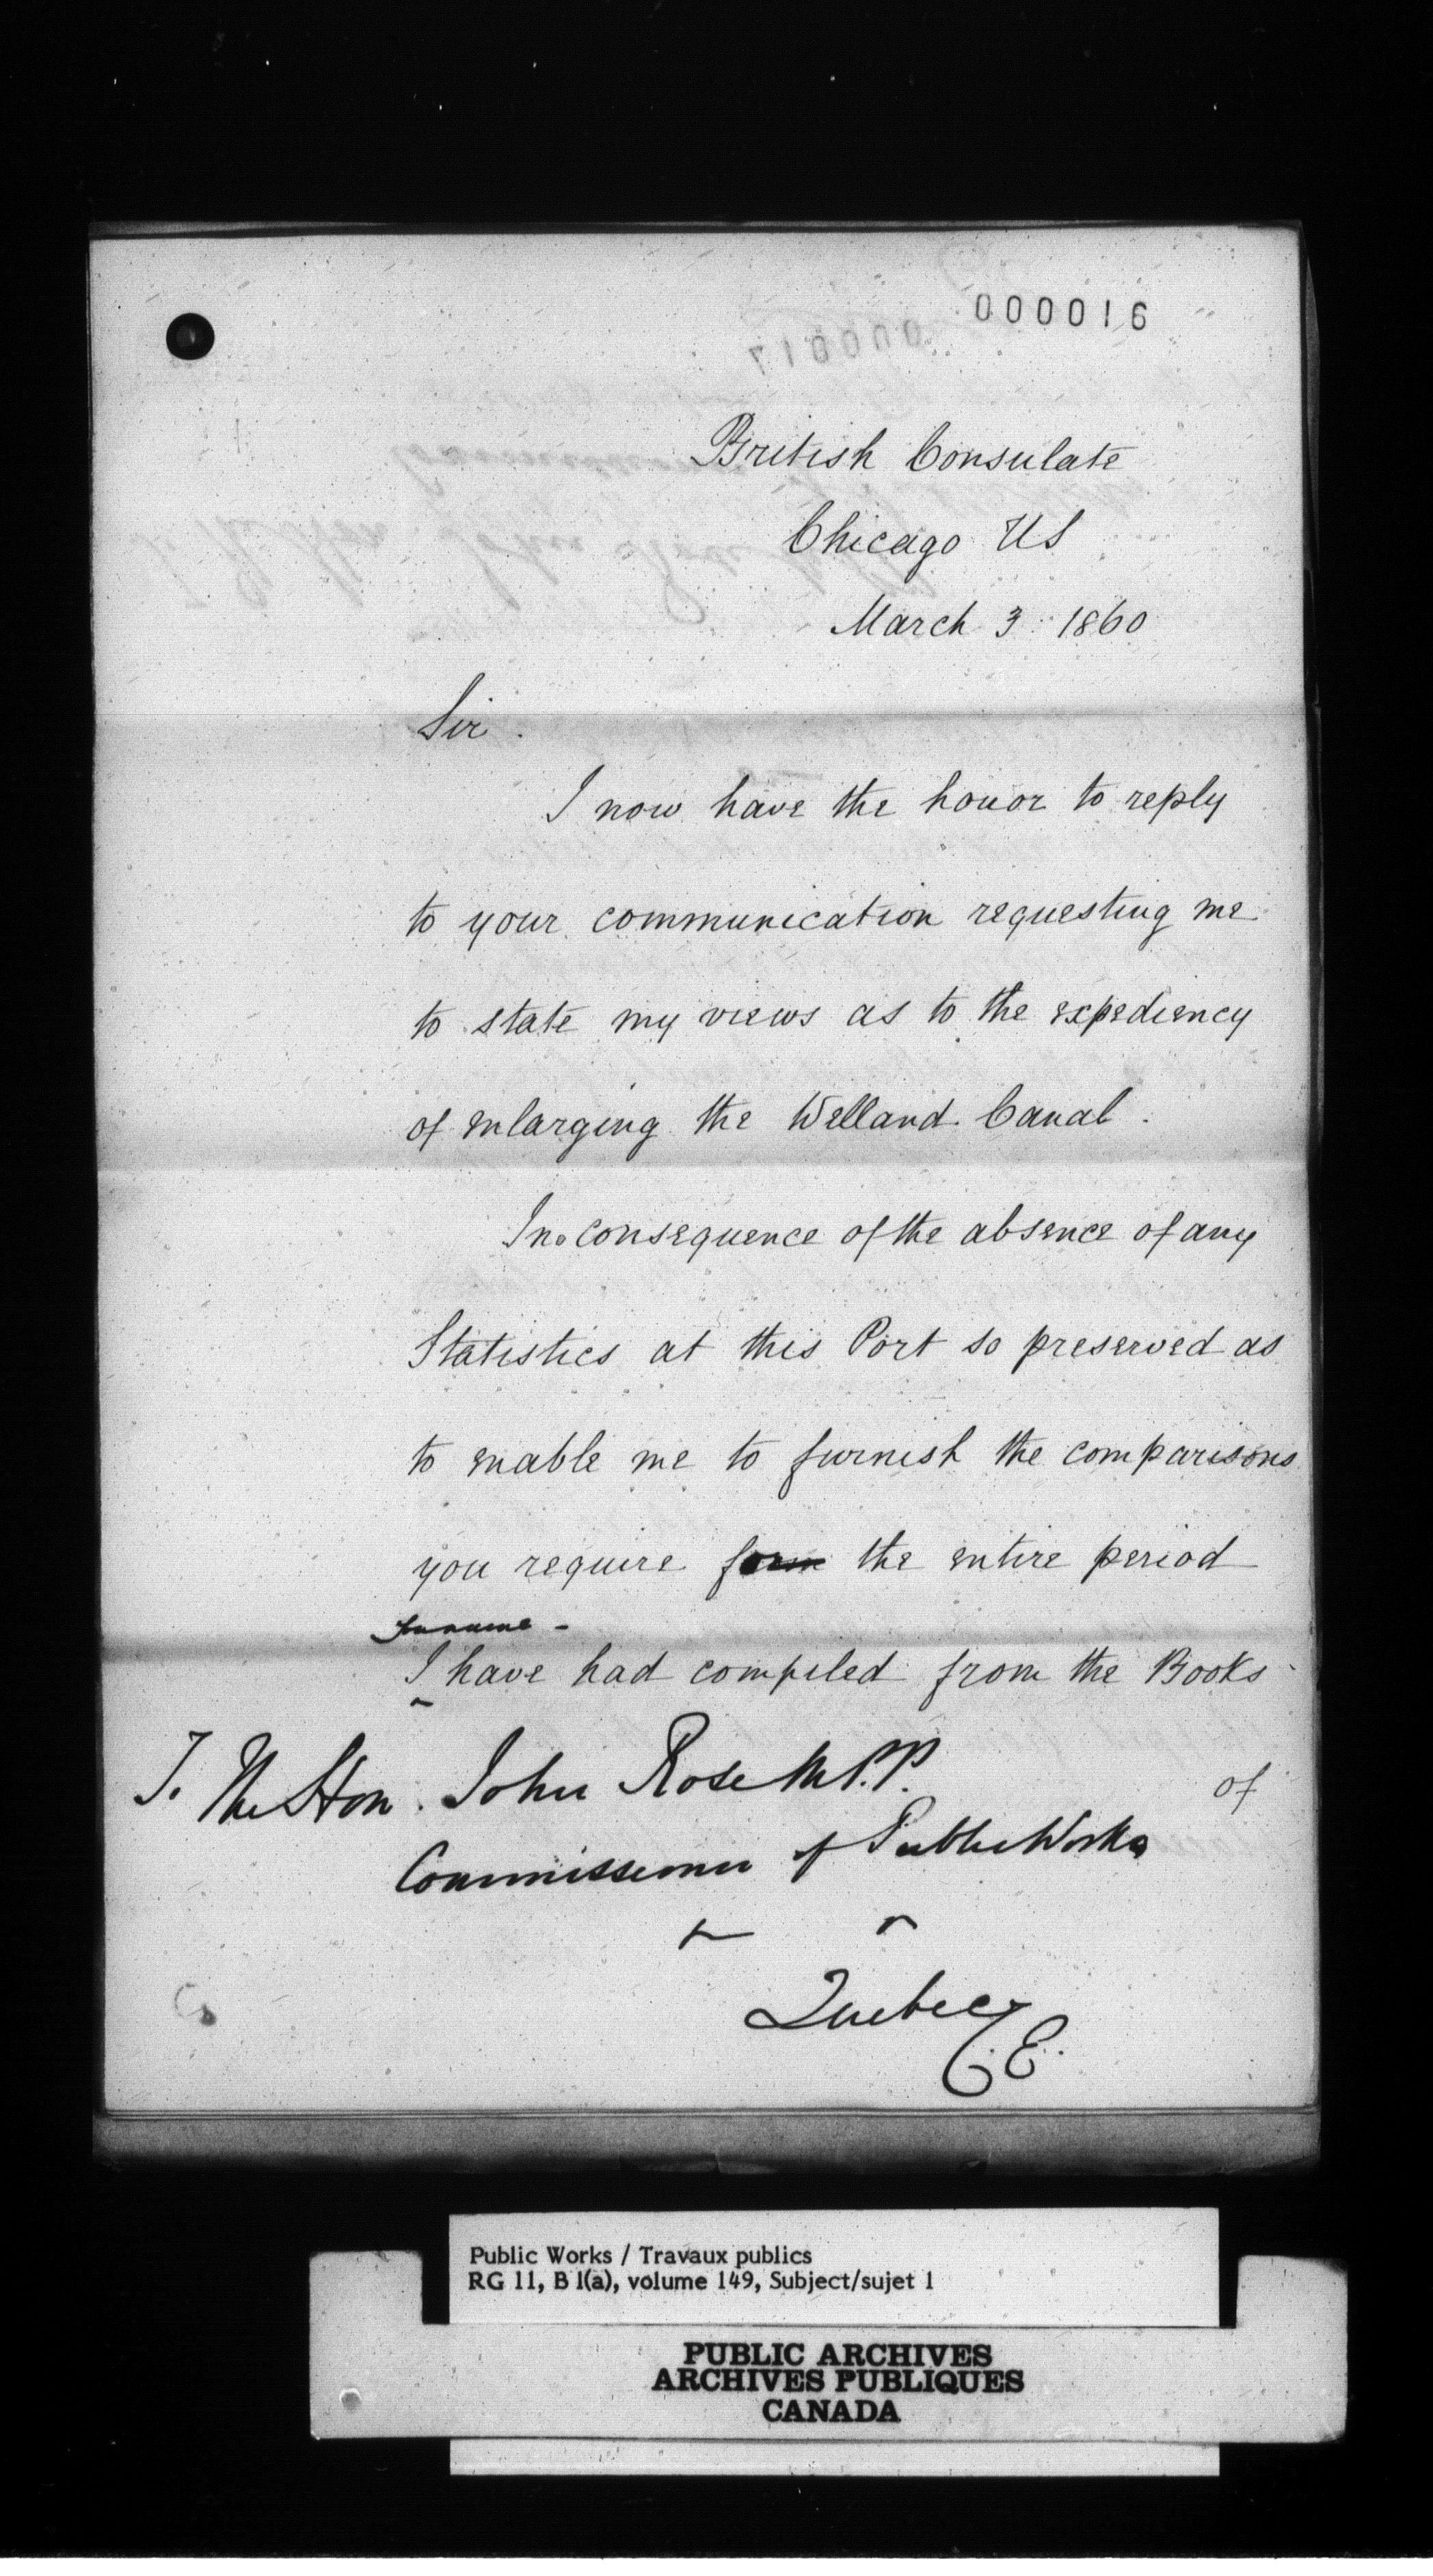 000016
000017
British Consulate
Chicago US
March 3 1860
Sir.
I now have the honor to reply
to your communication requesting me
to state my views as to the expediency
of enlarging the Welland Canal.
In consequence of the absence of any
Statistics at this Port so preserved as
to enable me to furnish the comparisons
you require the entire period
I have had compiled from the Books
of
T. The Hon. John Rose M.P.P.
Commissioner of Public Works
Quebec
C.E.
Public Works / Travaux publics
RG 11, B 1(a), volume 149, Subject/sujet 1
PUBLIC ARCHIVES
ARCHIVES PUBLIQUES
CANADA